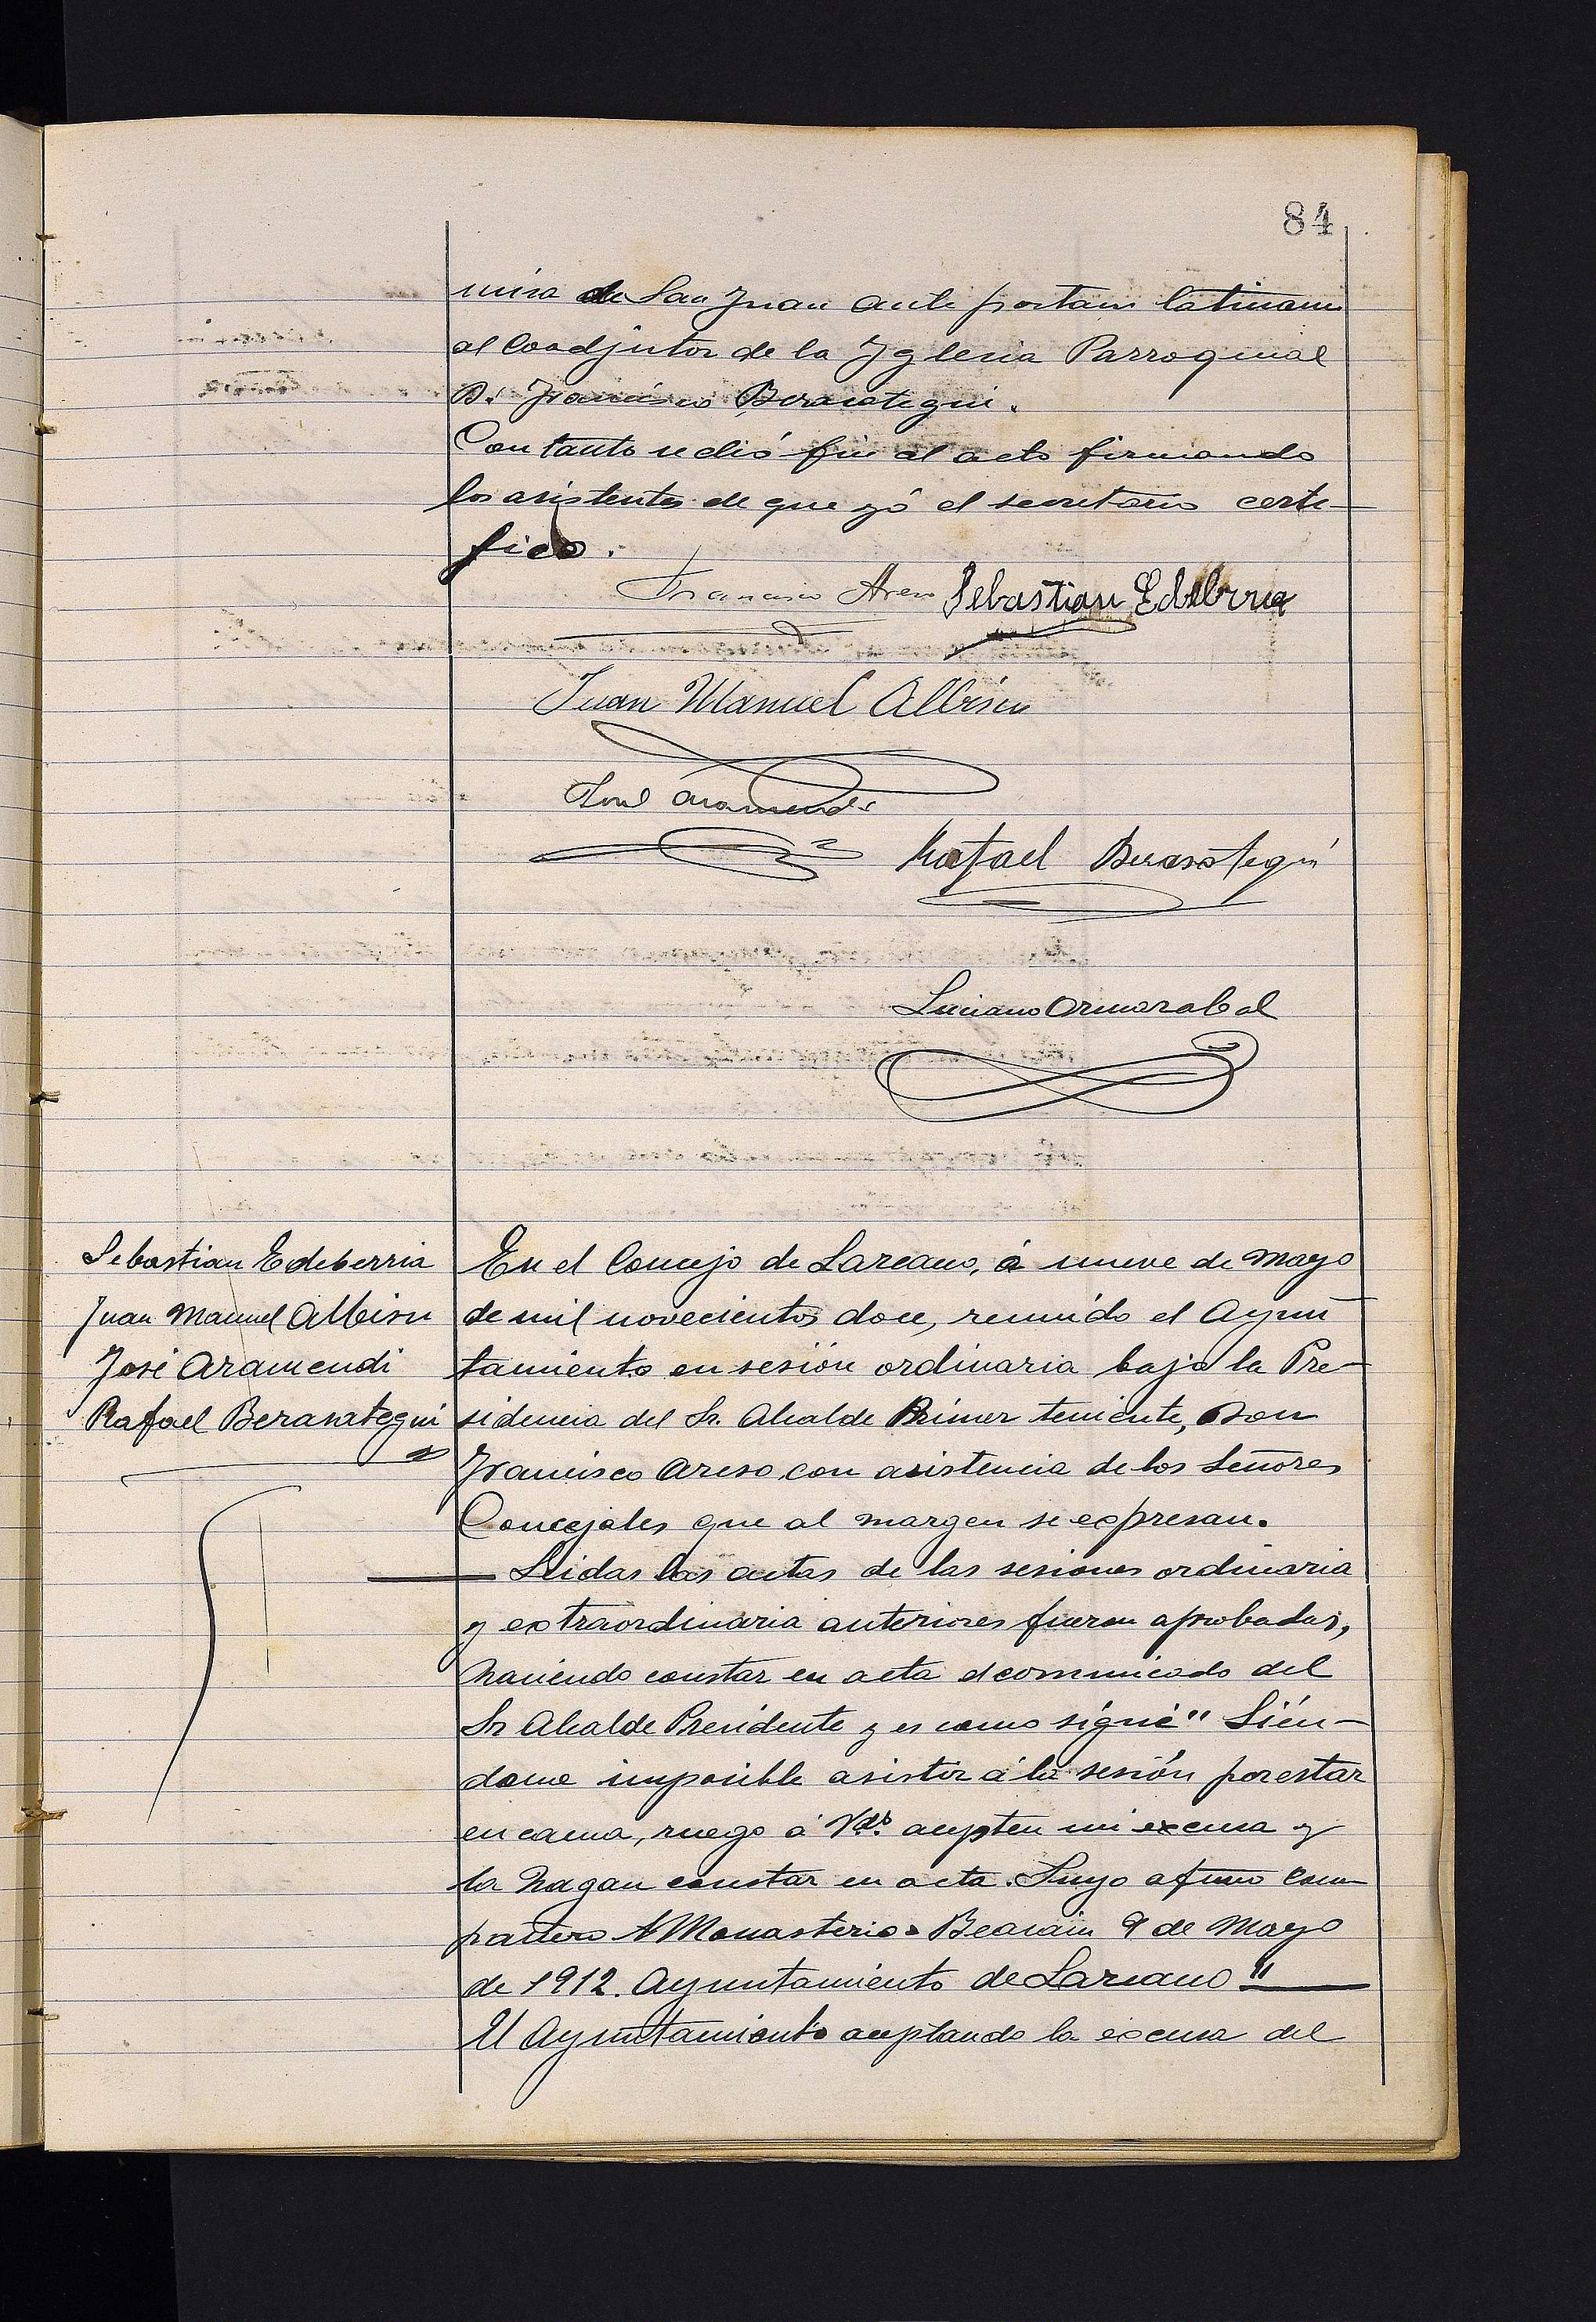 84
misa de San Juan ante portam latinam
al Coadjutor de la Yglesia Parroquial
D. Francisco Berasategui.
Con tanto se dió fin al acto firmando
los asistentes de que yó el secretario certi-
fico.
Francisco Areso Sebastian Echeberria
Juan Manuel Albisu
José Aramendi
Rafael Berasategui
Luciano Ormazabal
Sebastian Echeberria
Juan Manuel Albisu
José Aramendi
Rafael Berasategui
En el Concejo de Lazcano, á nueve de Mayo
de mil novecientos doce, reunido el Ayun
tamiento en sesión ordinaria bajo la Pre-
sidencia del Sr. Alcalde Primer teniente, Don
Francisco Areso con asistencia de los Señores
Concejales que al margen se expresan.
Leidas las actas de las sesiones ordinaria
y extraordinaria anteriores fueron aprobadas,
haciendo constar en acta el comunicado del
Sr Alcalde Presidente y es como sigue" Sién-
dome imposible asistir á la sesión por estar
en cama, ruego á Vds. acepten mi excusa y
la hagan constar en acta. Suyo afmo com
pañero A Monasterio. Beasain 9 de Mayo
de 1912. Ayuntamiento de Lazcano"
El Ayuntamiento aceptando la excusa del